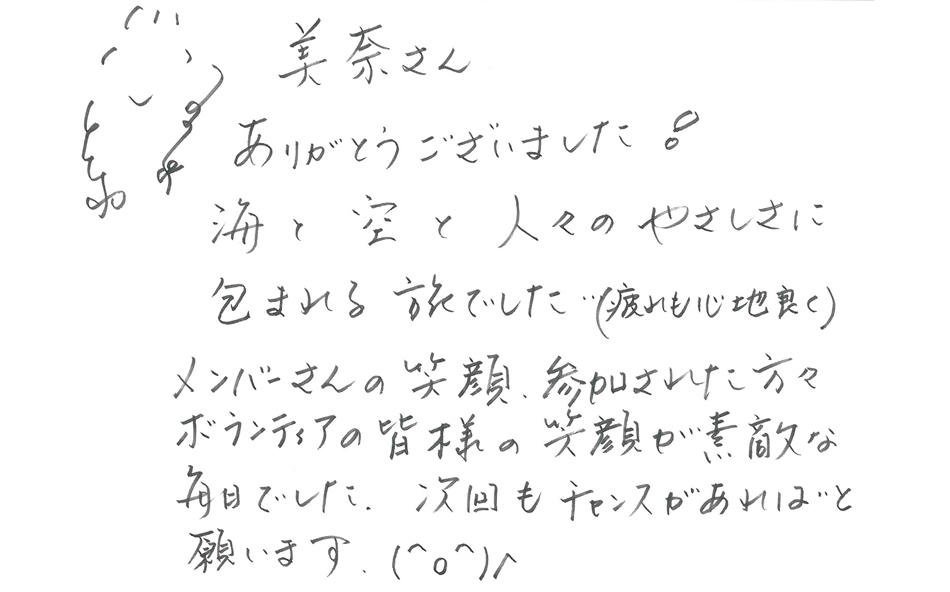 美奈さん
ありがとうございました!
海と空と人々のやさしさに
包まれる旅でした…(疲れも心地良く)
メンバーさんの笑顔、参加された方々
ボランティアの皆様の笑顔が素敵な
毎日でした。次回もチャンスがあればと
願います。(^o^)/